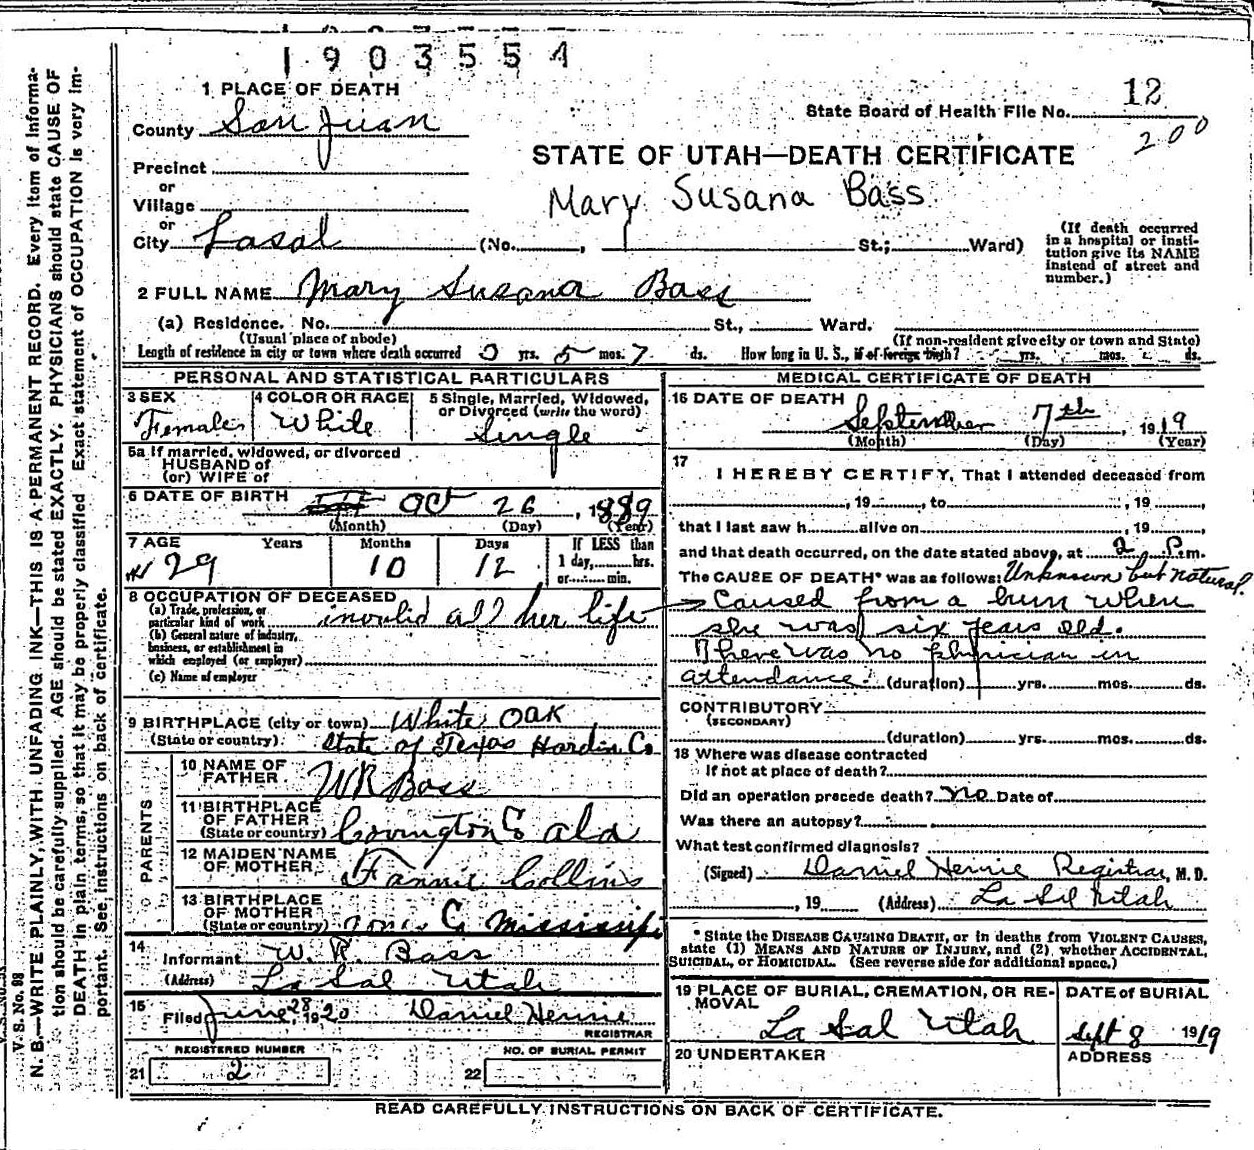 1903554
1 PLACE OF DEATH
12
State Board of Health File No.
200
County San Juan
STATE OF UTAH—DEATH CERTIFICATE
Precinct
or
Village
Mary Susana Bass
or
City Lasal (No. , St.; Ward)
(If death occurred
in a hospital or insti-
tution give its NAME
instead of street and
number.)
2 FULL NAME Mary Susana Bass
(a) Residence. No. St., Ward.
(Usual place of abode)
(If non-resident give city or town and State)
Length of residence in city or town where death occurred 0 yrs. 5 mos. 7 ds. How long in U. S., if of foreign birth? yrs. mos. ds.
PERSONAL AND STATISTICAL PARTICULARS
3 SEX
Female
4 COLOR OR RACE
White
5 Single, Married, Widowed,
or Divorced (write the word)
Single
5a If married, widowed, or divorced
HUSBAND of
(or) WIFE of
6 DATE OF BIRTH Oct 26, 1889
(Month) (Day) (Year)
7 AGE Years Months Days
29 10 12
If LESS than
1 day, hrs.
or min.
8 OCCUPATION OF DECEASED
(a) Trade, profession, or
particular kind of work invalid all her life
(b) General nature of industry,
business, or establishment in
which employed (or employer)
(c) Name of employer
9 BIRTHPLACE (city or town) White Oak
(State or country) State of Texas Hardin Co
PARENTS
10 NAME OF
FATHER W R Bass
11 BIRTHPLACE
OF FATHER
(State or country) Covington Co Ala
12 MAIDEN NAME
OF MOTHER Fannie Collins
13 BIRTHPLACE
OF MOTHER
(State or country) Jones Co Mississipi
14
Informant W. R. Bass
(Address) La Sal Utah
15
Filed June 28, 1920 Daniel Hennie
REGISTRAR
REGISTERED NUMBER
21 2
NO. OF BURIAL PERMIT
22
MEDICAL CERTIFICATE OF DEATH
16 DATE OF DEATH
September 7th, 1919
(Month) (Day) (Year)
17
I HEREBY CERTIFY, That I attended deceased from
, 19 , to , 19 ,
that I last saw h alive on , 19 ,
and that death occurred, on the date stated above, at 2 P.m.
The CAUSE OF DEATH* was as follows: Unknown but natural.
Caused from a burn when
she was six years old.
There was no physician in
attendance. (duration) yrs. mos. ds.
CONTRIBUTORY
(SECONDARY)
(duration) yrs. mos. ds.
18 Where was disease contracted
If not at place of death?
Did an operation precede death? no Date of
Was there an autopsy?
What test confirmed diagnosis?
(Signed) Daniel Hennie Registrar, M. D.
, 19 (Address) La Sal Utah
* State the DISEASE CAUSING DEATH, or in deaths from VIOLENT CAUSES,
state (1) MEANS AND NATURE OF INJURY, and (2), whether ACCIDENTAL,
SUICIDAL, or HOMICIDAL. (See reverse side for additional space.)
19 PLACE OF BURIAL, CREMATION, OR RE-
MOVAL
La Sal Utah
DATE of BURIAL
Sept 8 1919
20 UNDERTAKER
ADDRESS
READ CAREFULLY INSTRUCTIONS ON BACK OF CERTIFICATE.
V. S. No. 98
N. B.—WRITE PLAINLY WITH UNFADING INK—THIS IS A PERMANENT RECORD. Every item of informa-
tion should be carefully supplied. AGE should be stated EXACTLY. PHYSICIANS should state CAUSE OF
DEATH in plain terms, so that it may be properly classified. Exact statement of OCCUPATION is very im-
portant. See instructions on back of certificate.